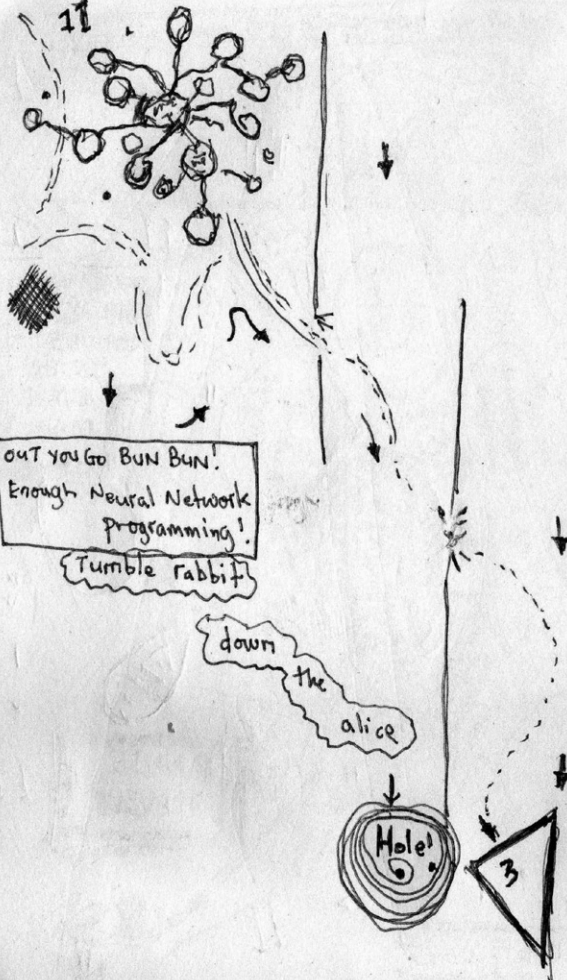 11
OUT YOU GO BUN BUN!
Enough Neural Network
Programming!
Tumble rabbit
down
the
alice
Hole!
3